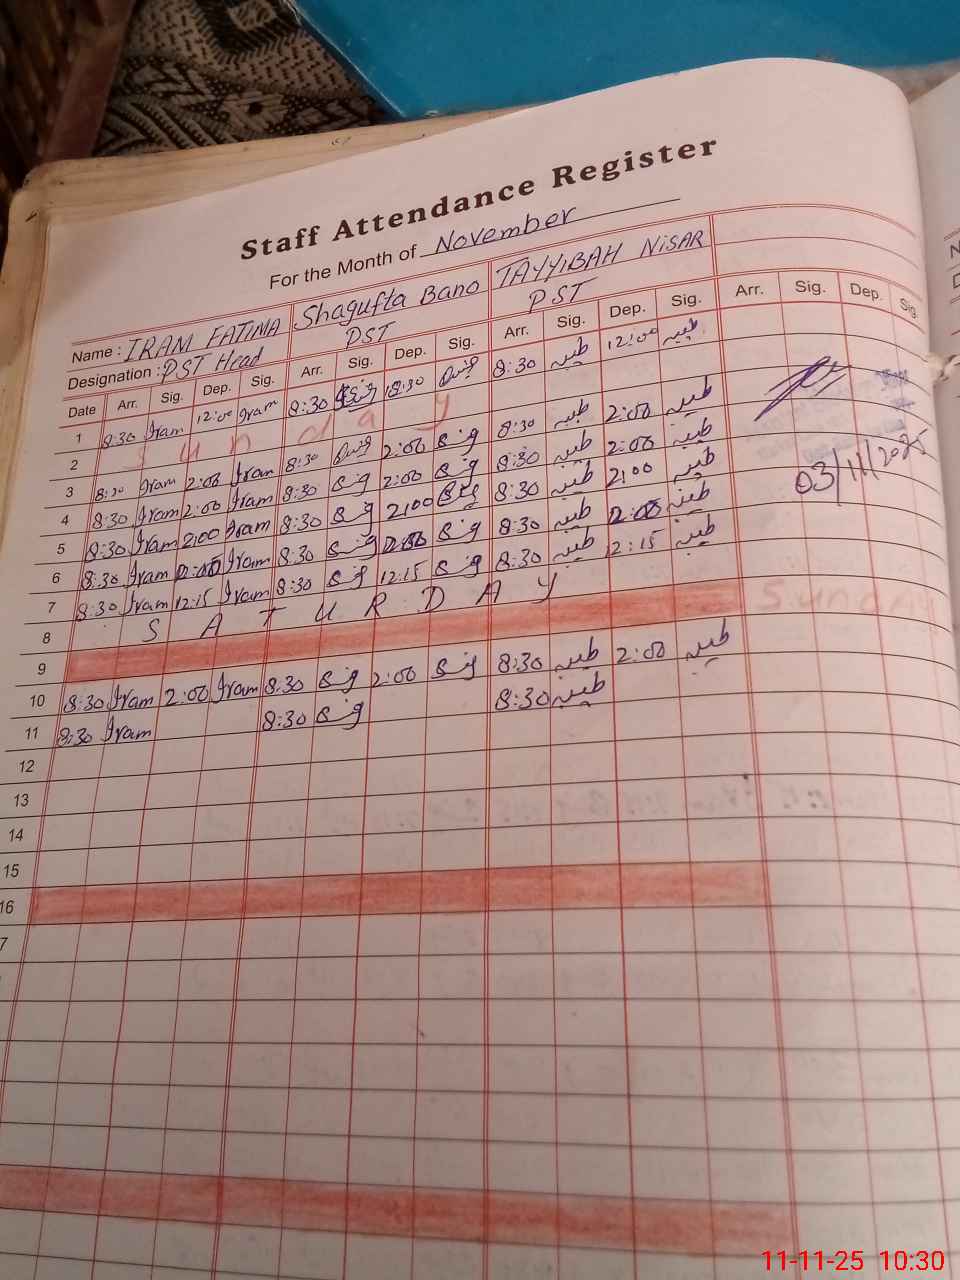 Staff Attendance Register
For the Month of November
Name : IRAM FATIMA Shagufta Bano TAYYIBAH NISAR
Designation : PST Head PST PST
Date Arr. Sig. Dep. Sig. Arr. Sig. Dep. Sig. Arr. Sig. Dep. Sig. Arr. Sig. Dep. Sig.
1 8:30 Iram 12:00 Iram 8:30 12:30 8:30 طیبہ 12:00 طیبہ
2 Sunday
3 8:30 Iram 2:00 Iram 8:30 2:00 8:30 طیبہ 2:00 طیبہ
4 8:30 Iram 2:00 Iram 8:30 2:00 8:30 طیبہ 2:00 طیبہ
5 8:30 Iram 2:00 Iram 8:30 2:00 8:30 طیبہ 2:00 طیبہ
6 8:30 Iram Iram 8:30 8:30 طیبہ طیبہ
7 8:30 Iram 12:15 Iram 8:30 12:15 8:30 طیبہ 12:15 طیبہ
03/11/2025
8 SATURDAY
9 Sunday
10 8:30 Iram 2:00 Iram 8:30 2:00 8:30 طیبہ 2:00 طیبہ
11 8:30 Iram 8:30 8:30 طیبہ
12
13
14
15
16
7
11-11-25 10:30